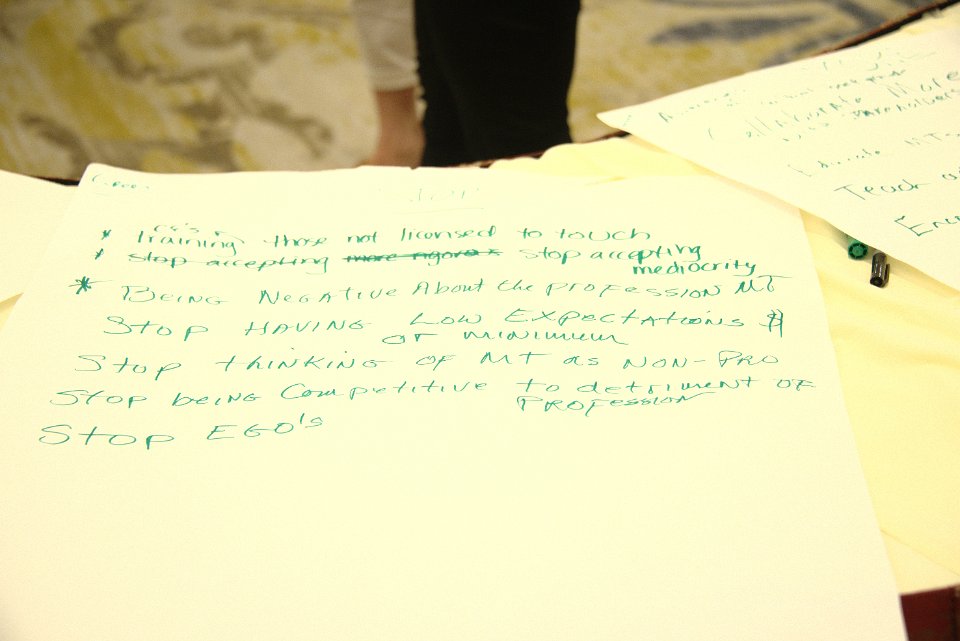 * Training those not licensed to touch
* stop accepting more rigorous stop accepting mediocrity
* Being Negative About the profession MT
Stop Having Low Expectations $
or minimum
Stop thinking of MT as Non-Pro
Stop being Competitive to detriment of
Profession
Stop EGO's
Collaborate More
stakeholders
Educate MT
Teach